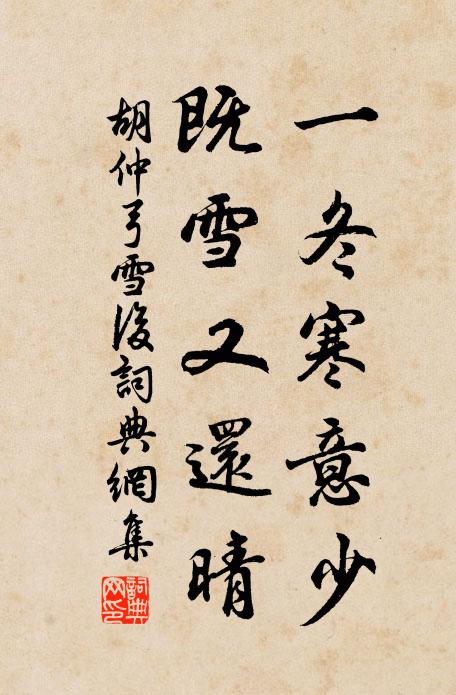 一冬寒意少
既雪又還晴
胡仲弓雪後詞典網集
詞典網印